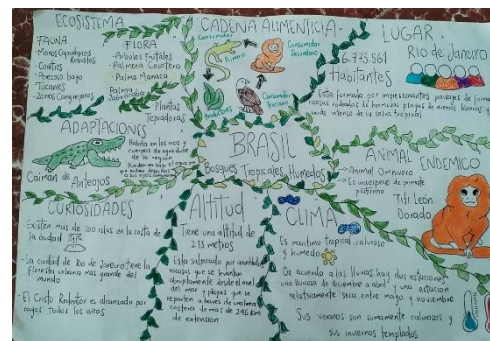 ECOSISTEMA
FAUNA
-Monos Capuchinos
Robustos
-Coatíes
-Perezoso bayo
Tucanes
-Zorros Cangrejeros
FLORA
-Arboles Frutales
-Palmera Cocotera
-Palma Manaca
-Palma
Plantas
Trepadoras
CADENA ALIMENTICIA
Consumidor
Primario
Consumidor
Secundario
Productores
Consumidor
Terciario
LUGAR
Río de Janeiro
6.775.561
Habitantes
Esta formada por impresionantes paisajes de
rodeadas de playas de arenas blancas y
verde intenso de la selva tropical
ADAPTACIONES
Habita en los ríos y
cuerpos de agua dulce
de la región
Caimán de Anteojos
BRASIL
Bosques Tropicales Humedos
ANIMAL ENDEMICO
Animal Omnivoro
Es una especie de primate
platirrino
Tití León
Dorado
CURIOSIDADES
Existen mas de 100 islas en la costa de
la ciudad
-La ciudad de Río de Janeiro tiene la
floresta urbana mas grande del
mundo
-El Cristo Redentor es alcanzado por
rayos todos los años
Altitud
Tiene una altitud de
213 metros
Esta salpicado por
rocosos que se levantan
abruptamente desde el nivel
del mar y playas que se
reparten a traves de una linea
costera de más de 246 km
de extension
CLIMA
Es maritimo tropical, caluroso
y humedo
De acuerdo a las lluvias, hay dos estaciones
una lluviosa de diciembre a abril y una estación
relativamente seca entre mayo y noviembre
Sus veranos son sumamente calurosos y
sus inviernos templados